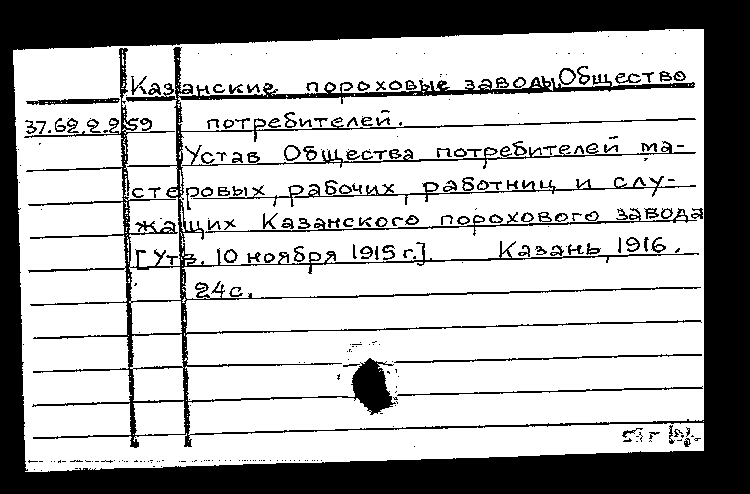 Казанские пороховые заводы, Общество
37.62.2.259 потребителей.
Устав Общества потребителей ма-
стеровых, рабочих, работниц и слу-
жащих Казанского порохового завода
[Утв. 10 ноября 1915 г.]. Казань, 1916.
24с.